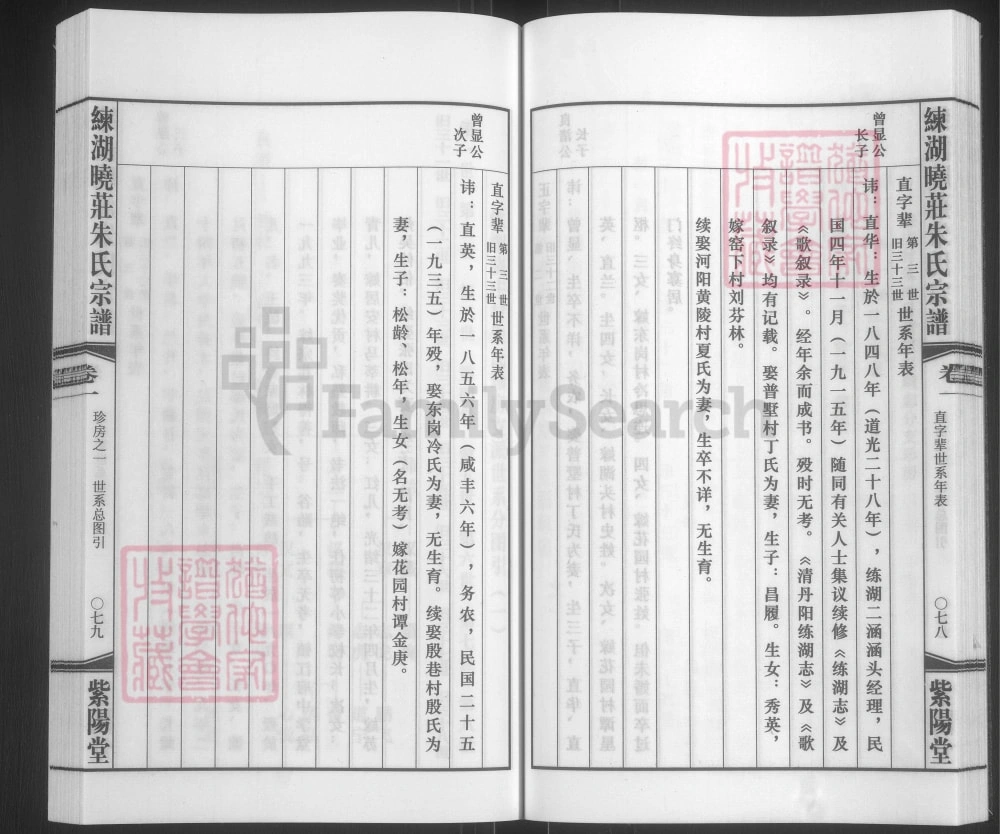 練湖曉莊朱氏宗譜
卷一
直字辈世系年表
〇七八
紫陽堂
曾显公
长子
直字辈 第三世 旧三十三世 世系年表
讳：直华：生於一八四八年（道光二十八年），练湖二涵涵头经理，民
国四年十一月（一九一五年）随同有关人士集议续修《练湖志》及
《歌叙录》。经年余而成书。殁时无考。《清丹阳练湖志》及《歌
叙录》均有记载。娶普墅村丁氏为妻，生子：昌履。生女：秀英，
嫁窑下村刘芬林。
续娶河阳黄陵村夏氏为妻，生卒不详，无生育。
曾显公
次子
直字辈 第三世 旧三十三世 世系年表
讳：直英，生於一八五六年（咸丰六年），务农，民国二十五
（一九三五）年殁，娶东岗冷氏为妻，无生育。续娶殷巷村殷氏为
妻，生子：松龄、松年，生女（名无考）嫁花园村谭金庚。
練湖曉莊朱氏宗譜
卷一
珍房之一 世系总图引
〇七九
紫陽堂
FamilySearch